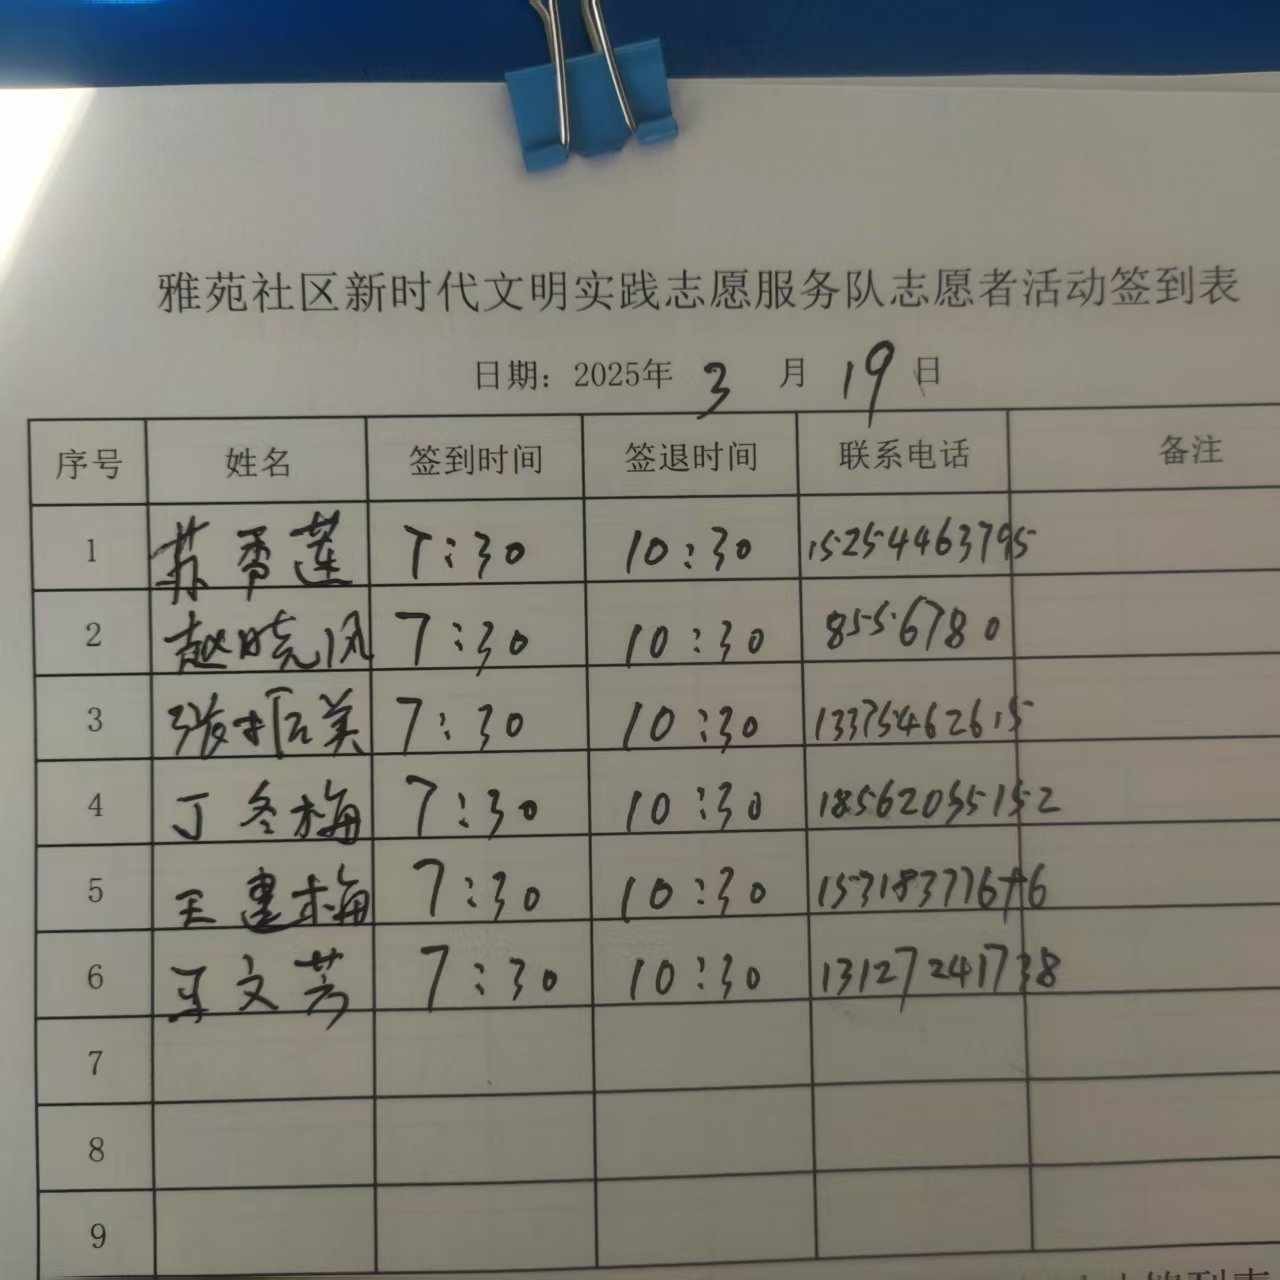 雅苑社区新时代文明实践志愿服务队志愿者活动签到表
日期：2025年 3 月 19 日
序号 姓名 签到时间 签退时间 联系电话 备注
1 苏香莲 7:30 10:30 15254463795
2 赵晓风 7:30 10:30 8556780
3 张相美 7:30 10:30 13375462615
4 丁冬梅 7:30 10:30 18562035152
5 王惠梅 7:30 10:30
6 王文芳 7:30 10:30 13127241738
7
8
9